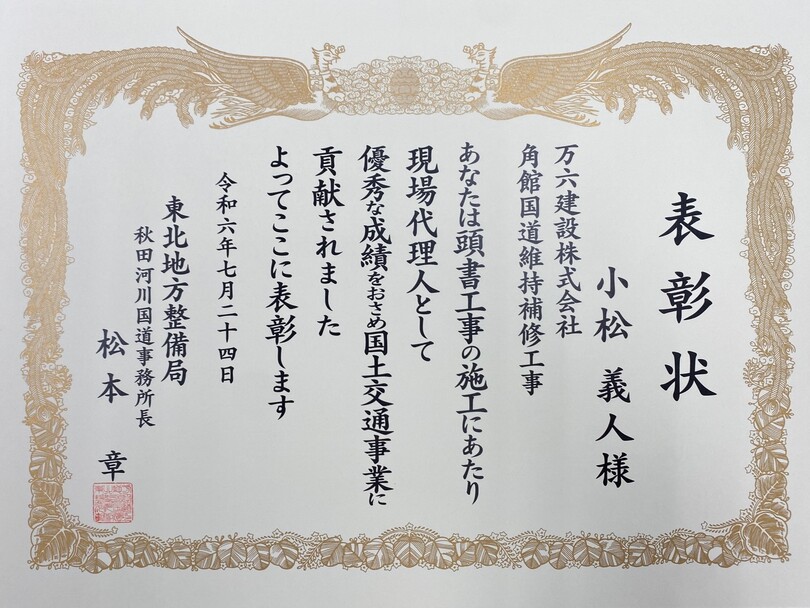 表彰状
小松 義人様
万六建設株式会社
角館国道維持補修工事
あなたは頭書工事の施工にあたり
現場代理人として
優秀な成績をおさめ国土交通事業に
貢献されました
よってここに表彰します
令和六年七月二十四日
東北地方整備局
秋田河川国道事務所長
松本 章